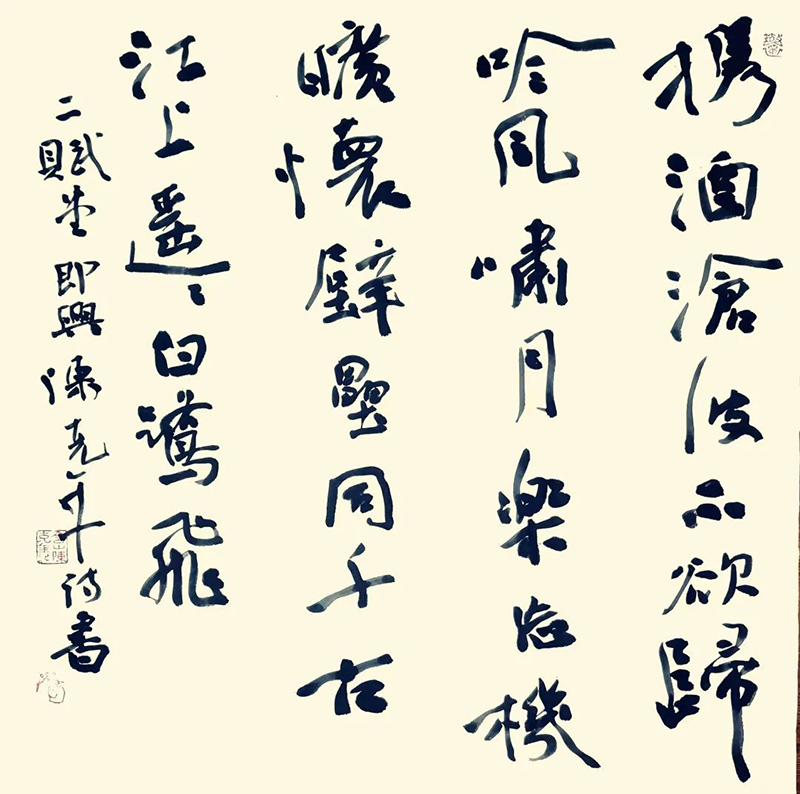 携酒滄波不欲歸
吟風嘯月樂忘機
曠懷壁壘同千古
江上遙〻白鷺飛
二賦堂即興陳克年詩書